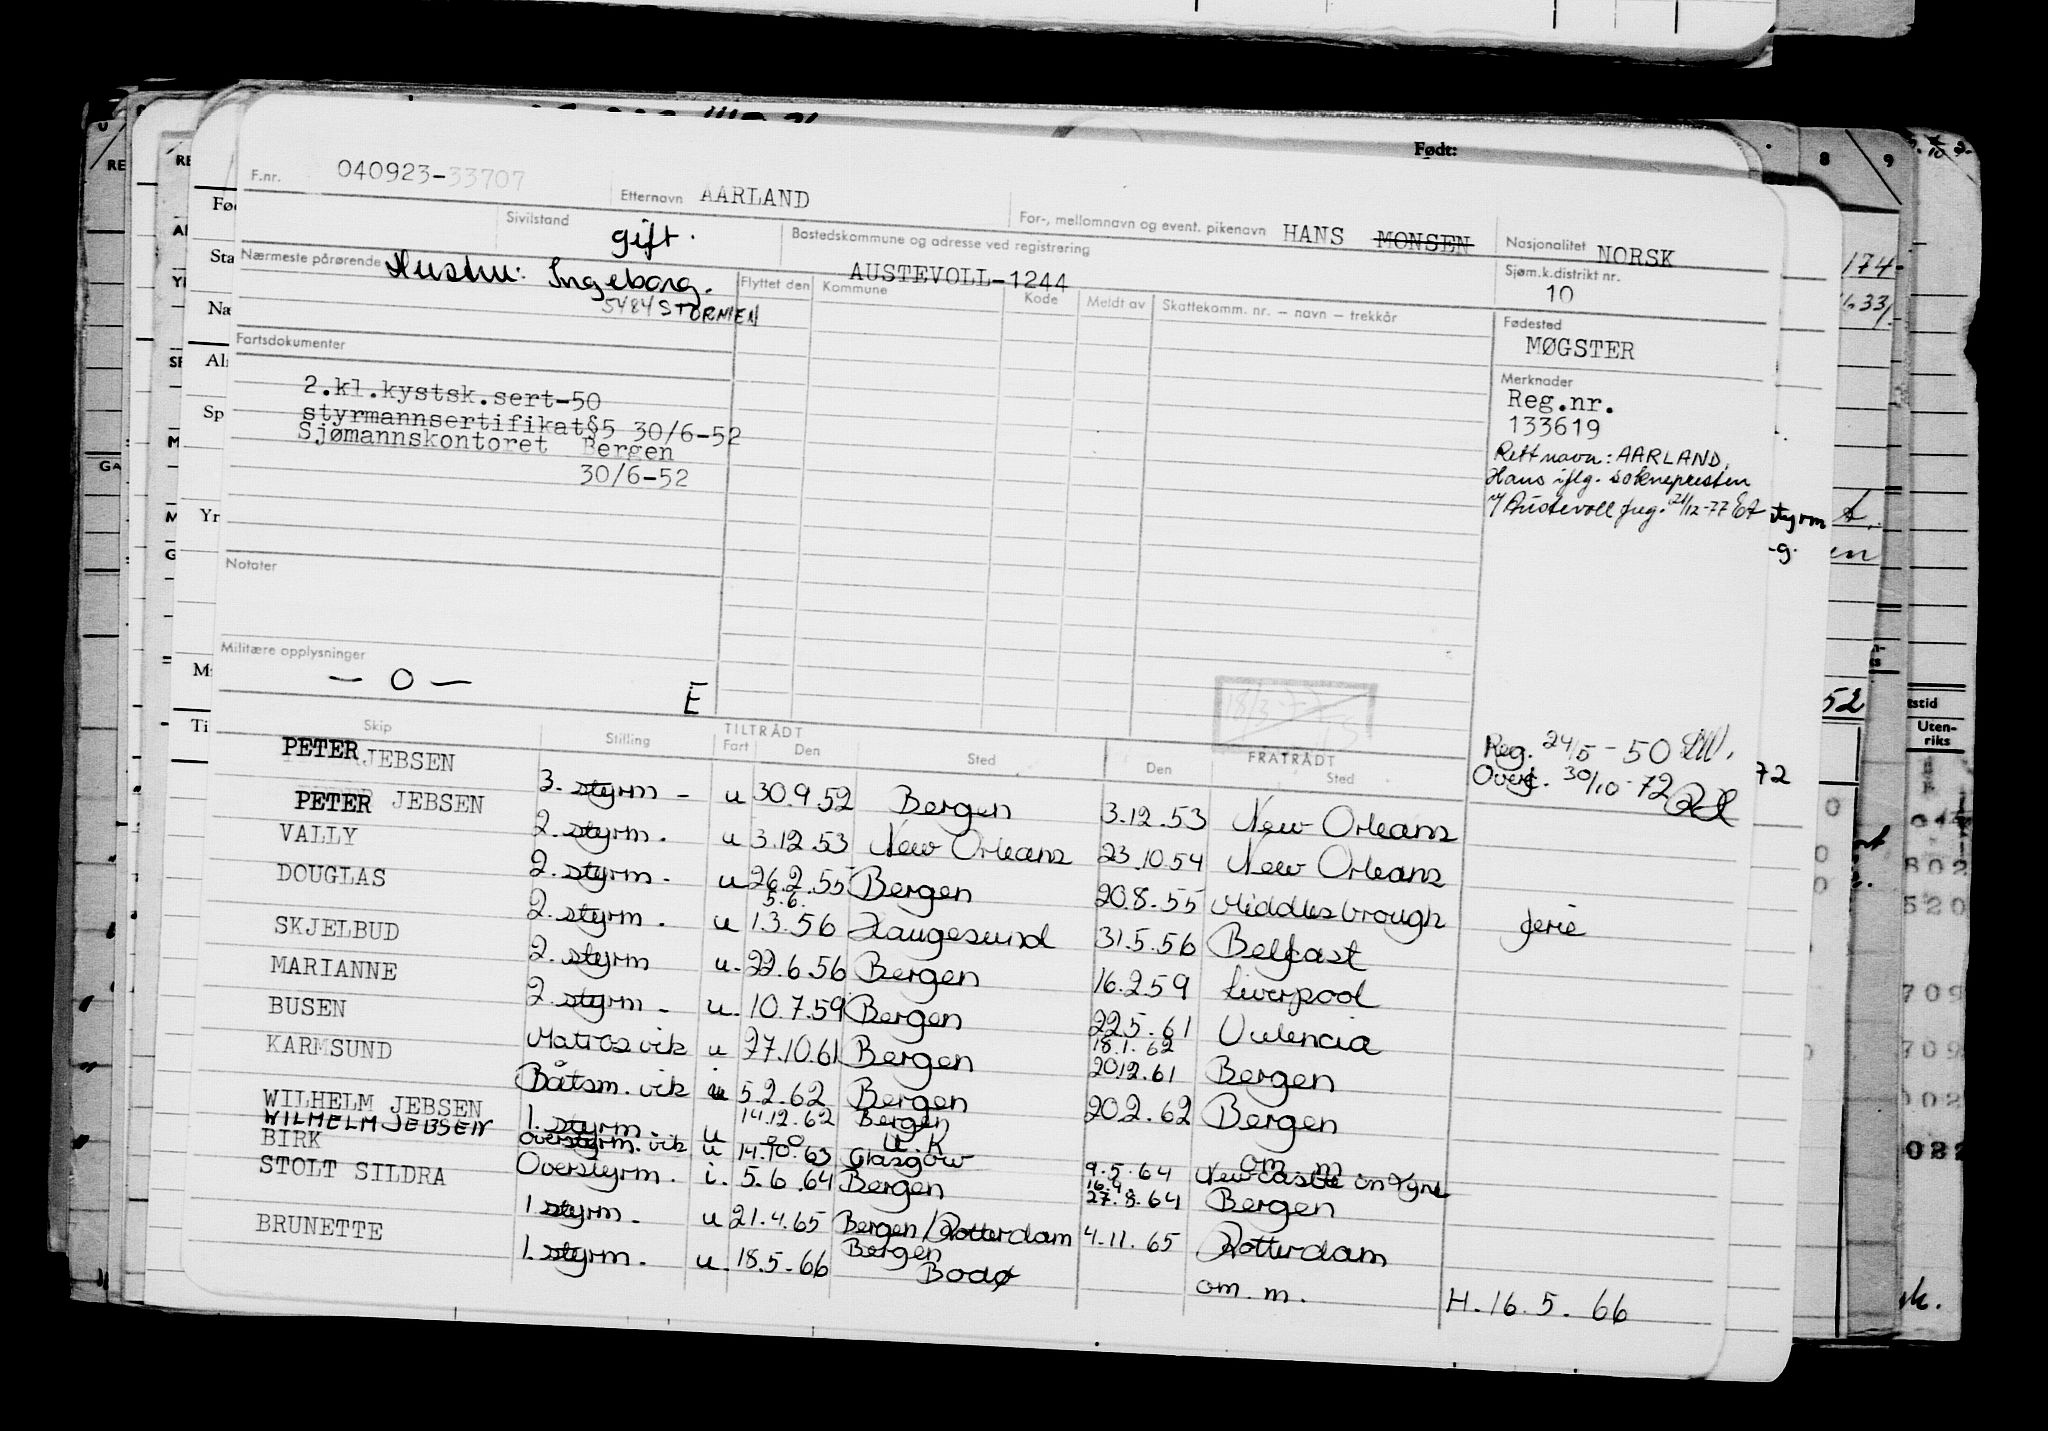 Født:
F.nr. 040923-33707 Etternavn AARLAND For-, mellomnavn og event. pikenavn HANS MONSEN Nasjonalitet NORSK
Sivilstand gift. Bostedskommune og adresse ved registrering AUSTEVOLL-1244 Sjøm.k.distrikt nr. 10
Nærmeste pårørende Hustru: Ingeborg.
5484 STORMEN
Flyttet den Kommune Kode Meldt av Skattekomm. nr. – navn – trekkår
Fødested
MØGSTER
Fartsdokumenter
2.kl.kystsk.sert-50
styrmannsertifikat§5 30/6-52
Sjømannskontoret Bergen
30/6-52
Merknader
Reg.nr.
133619
Rett navn: AARLAND,
Hans iflg. soknepresten
i/ Austevoll
Notater
Militære opplysninger
— O —
E
Reg. 24/5 - 50
Overf. 30/10-72
Skip Stilling TILTRÅDT Fart Den Sted FRATRÅDT Den Sted
PETER JEBSEN 3. styrm - u 30.9.52 Bergen 3.12.53 New Orleans
PETER JEBSEN 2. styrm. u 3.12.53 New Orleans 23.10.54 New Orleans
VALLY 2. styrm. u 26.2.55 Bergen 20.8.55 Middlesbrough ferie
DOUGLAS 2. styrm. u 5.6. 1.3.56 Haugesund 31.5.56 Belfast
SKJELBUD 2. styrm u. 22.6.56 Bergen 16.2.59 Liverpool
MARIANNE 2. styrm. u. 10.7.59 Bergen 22.5.61 Valencia
BUSEN Matros vik u 27.10.61 Bergen 18.1.62 20.12.61 Bergen
KARMSUND Båtsm. vik 5.2.62 Bergen 20.2.62 Bergen
WILHELM JEBSEN 1. styrm. u 14.12.62 Bergen U.K om m.
WILHELM JEBSEN overstyrm. vik u 14.10.63 Glasgow 9.5.64 Newcastle on Tyne
BIRK Overstyrm. i. 5.6.64 Bergen 27.8.64 Bergen
STOLT SILDRA 1 styrm. u 21.4.65 Bergen/Rotterdam 4.11.65 Rotterdam
BRUNETTE 1. styrm. u. 18.5.66 Bergen Bodø om. m. H.16.5.66